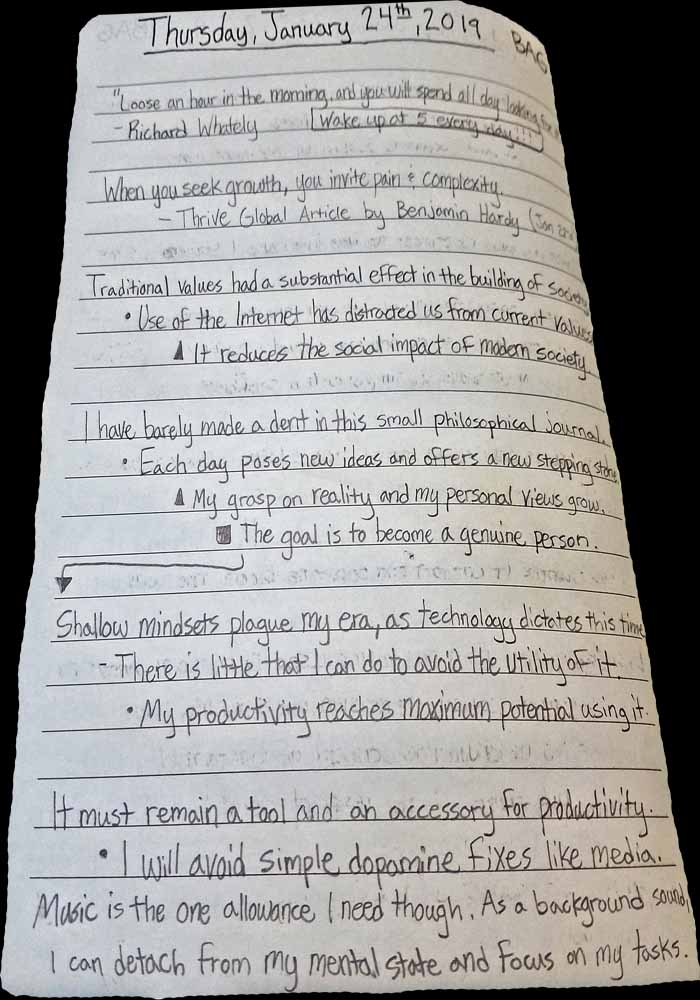 Thursday, January 24th, 2019 BAG
"Loose an hour in the morning, and you will spend all day looking for
- Richard Whately Wake up at 5 every day!!!
When you seek growth, you invite pain & complexity.
- Thrive Global Article by Benjamin Hardy (Jan
Traditional values had a substantial effect in the building of society
• Use of the Internet has distracted us from current values
▲ It reduces the social impact of modern society.
I have barely made a dent in this small philosophical journal.
• Each day poses new ideas and offers a new stepping stone
▲ My grasp on reality and my personal views grow.
■ The goal is to become a genuine person.
Shallow mindsets plague my era, as technology dictates this time
- There is little that I can do to avoid the utility of it.
• My productivity reaches maximum potential using it.
It must remain a tool and an accessory for productivity.
• I will avoid simple dopamine fixes like media.
Music is the one allowance I need though. As a background sound,
I can detach from my mental state and focus on my tasks.